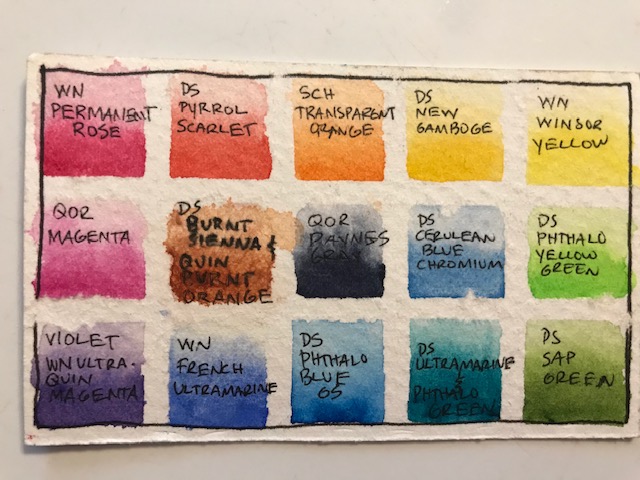 WN
PERMANENT
ROSE
DS
PYRROL
SCARLET
SCH
TRANSPARENT
ORANGE
DS
NEW
GAMBOGE
WN
WINSOR
YELLOW
QOR
MAGENTA
DS
BURNT
SIENNA &
QUIN
BURNT
ORANGE
QOR
PAYNES
GRAY
DS
CERULEAN
BLUE
CHROMIUM
DS
PHTHALO
YELLOW
GREEN
VIOLET
WN ULTRA.
QUIN
MAGENTA
WN
FRENCH
ULTRAMARINE
DS
PHTHALO
BLUE
GS
DS
ULTRAMARINE
&
PHTHALO
GREEN
DS
SAP
GREEN